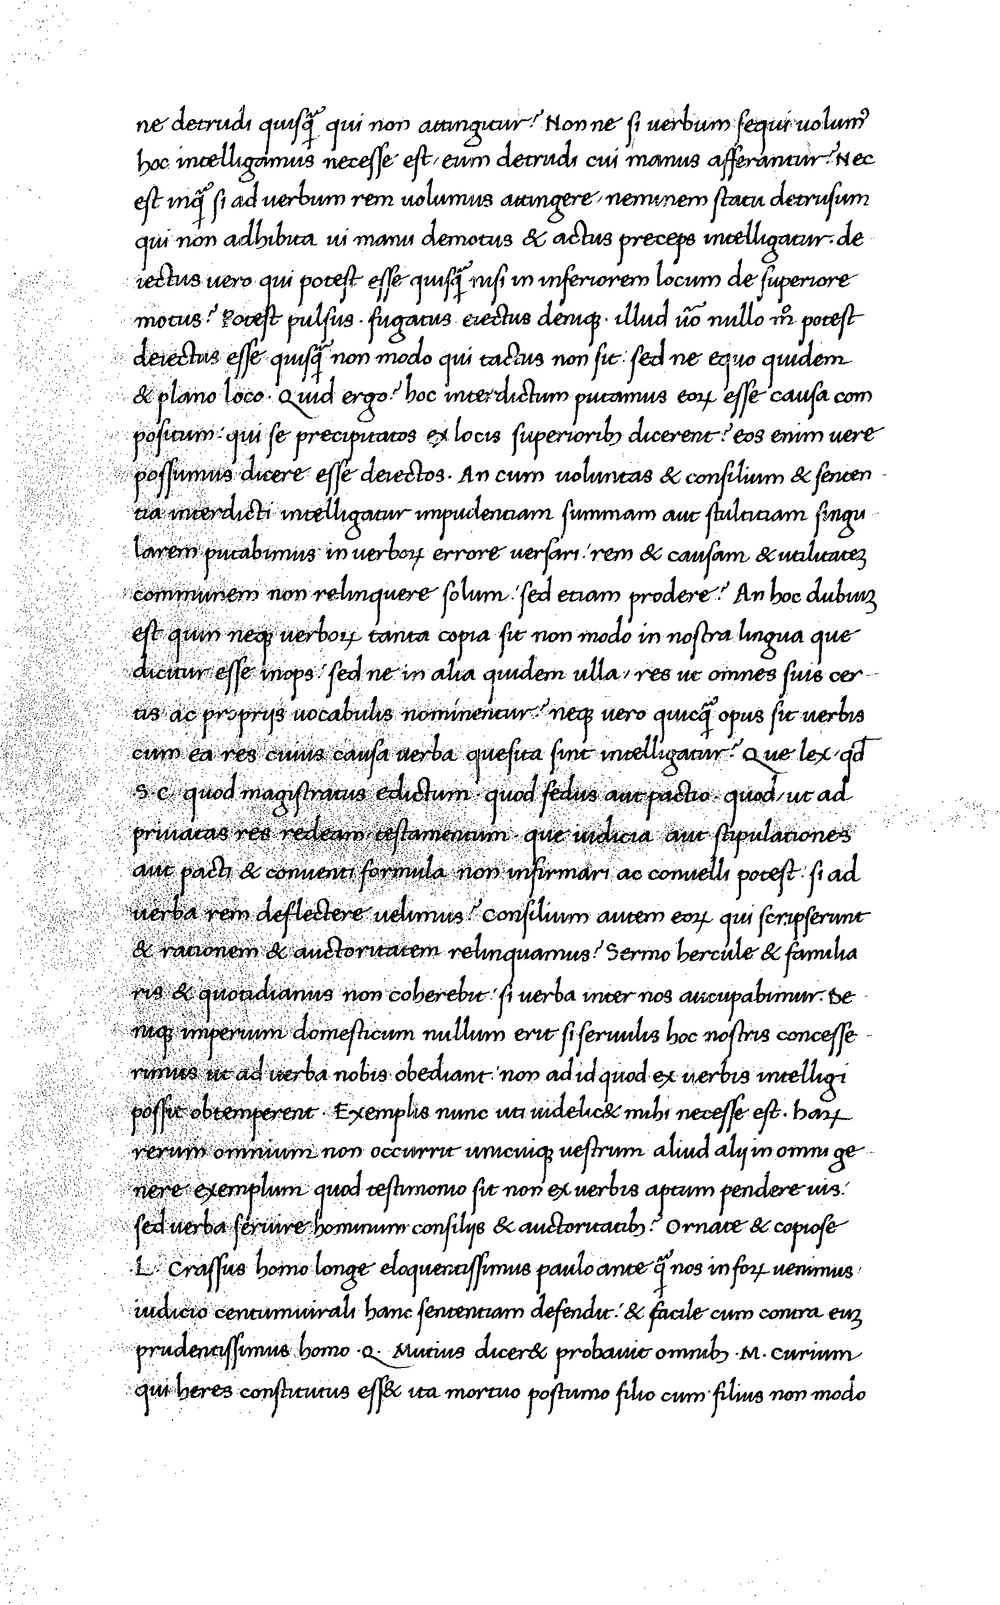 ne detrudi quisq̃ qui non attingitur? Nonne si uerbum sequi volumꝰ
hoc intelligamus necesse est, eum detrudi cui manus afferantur? Nec
est inq̃ si ad uerbum rem uolumus attingere, neminem statu detrusum
qui non adhibita ui manu demotus & actus preceps intelligatur. de
iectus uero qui potest esse quisq̃ nisi in inferiorem locum de superiore
motus? Potest pulsus. fugatus eiectus deniq;. illud uo᷃ nullo mº potest
deiectus esse quisq̃ non modo qui tactus non sit: sed ne equo quidem
& plano loco. Quid ergo? hoc interdictum putamus eoꝝ esse causa com
positum: qui se precipitatos ex locis superiorib; dicerent? eos enim uere
possumus dicere esse deiectos. An cum uoluntas & consilium & senten
tia interdicti intelligatur impudentiam summam aut stultitiam singu
larem putabimus in uerboꝝ errore versari: rem & causam & utilitateꝫ
communem non relinquere solum: sed etiam prodere? An hoc dubiuꝫ
est quin neq; uerboꝝ tanta copia sit non modo in nostra lingua que
dicitur esse inops: sed ne in alia quidem ulla, res ut omnes suis cer
tis ac proprijs uocabulis nominentur? neq; vero quicq̃ opus sit uerbis
cum ea res cuius causa uerba quesita sint intelligatur? Que lex, qd̄
S. C. quod magistratus edictum. quod fedus aut pactio. quod, ut ad
priuatas res redeam testamentum. que iudicia aut stipulationes
aut pacti & conuenti formula non infirmari ac conuelli potest: si ad
uerba rem deflectere uelimus? Consilium autem eoꝝ qui scripserunt
& rationem & auctoritatem relinquamus? Sermo hercule & familia
ris & quotidianus non coherebit: si verba inter nos aucupabimur. De
niq; imperium domesticum nullum erit si seruulis hoc nostris concesse
rimus ut ad uerba nobis obediant: non ad id quod ex uerbis intelligi
possit obtemperent. Exemplis nunc uti uidelic& mihi necesse est. haꝝ
rerum omnium non occurrit unicuiq; uestrum aliud alij in omni ge
nere exemplum quod testimonio sit non ex uerbis aptum pendere uis:
sed uerba seruire hominum consilijs & auctoritatib;? Ornate & copiose
L. Crassus homo longe eloquentissimus paulo ante q̃ nos in foꝝ uenimus,
iudicio centumuirali hanc sententiam defendit: & facile cum contra euꝫ
prudentissimus homo .Q. Mutius dicer& probauit omnib; .M. Curium
qui heres constitutus ess& ita mortuo postumo filio cum filius non modo